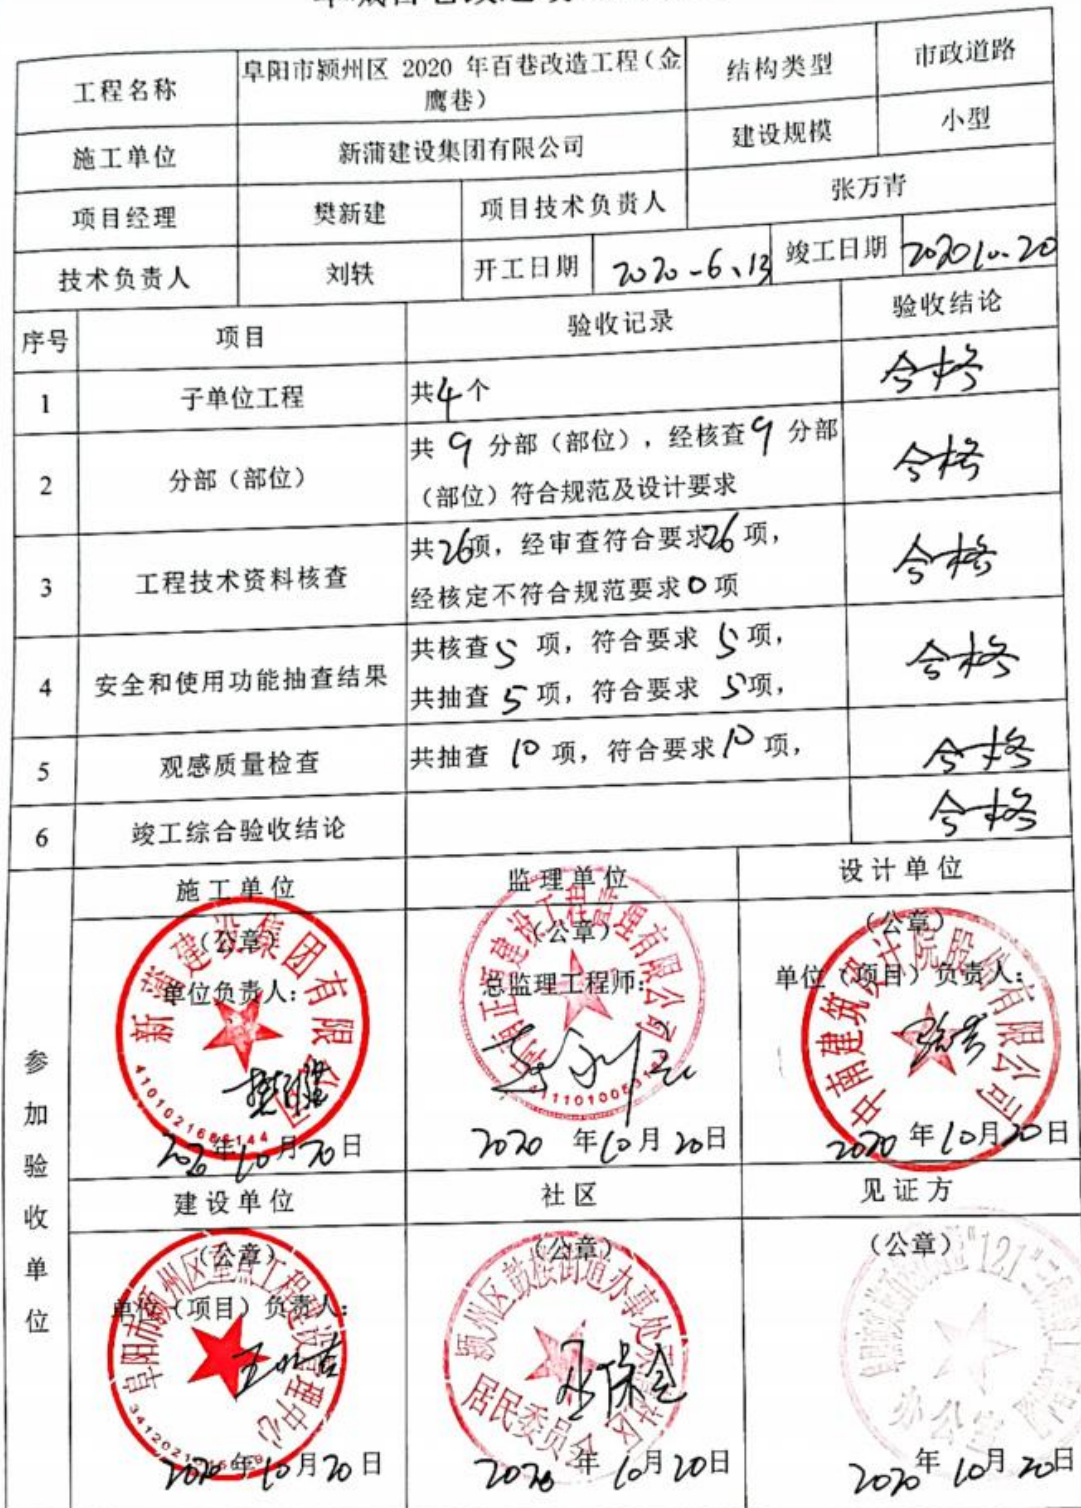 工程名称
阜阳市颍州区 2020 年百巷改造工程（金
鹰巷）
结构类型
市政道路
施工单位
新蒲建设集团有限公司
建设规模
小型
项目经理
樊新建
项目技术负责人
张万青
技术负责人
刘轶
开工日期
2020-6、13
竣工日期
2020 10.20
序号
项目
验收记录
验收结论
1
子单位工程
共4个
合格
2
分部（部位）
共 9 分部（部位），经核查9 分部
（部位）符合规范及设计要求
合格
3
工程技术资料核查
共26项，经审查符合要求26项，
经核定不符合规范要求0项
合格
4
安全和使用功能抽查结果
共核查5 项，符合要求 5项，
共抽查 5项，符合要求 5项，
合格
5
观感质量检查
共抽查 10 项，符合要求10 项，
合格
6
竣工综合验收结论
合格
参加验收单位
施工单位
（公章）
单位负责人：
新蒲建设集团有限公司
2020年10月20日
监理单位
（公章）
总监理工程师：
建设工程监理有限公司
2020 年10月20日
设计单位
（公章）
单位（项目）负责人：
中南建筑设计院股份有限公司
2020 年10月20日
建设单位
（公章）
单位（项目）负责人：
阜阳市颍州区重点工程建设管理中心
2020年10月20日
社区
（公章）
颍州区鼓楼街道办事处
社区
居民委员会
2020 年 10月20日
见证方
（公章）
"121"
办公室
2020年 10月20日